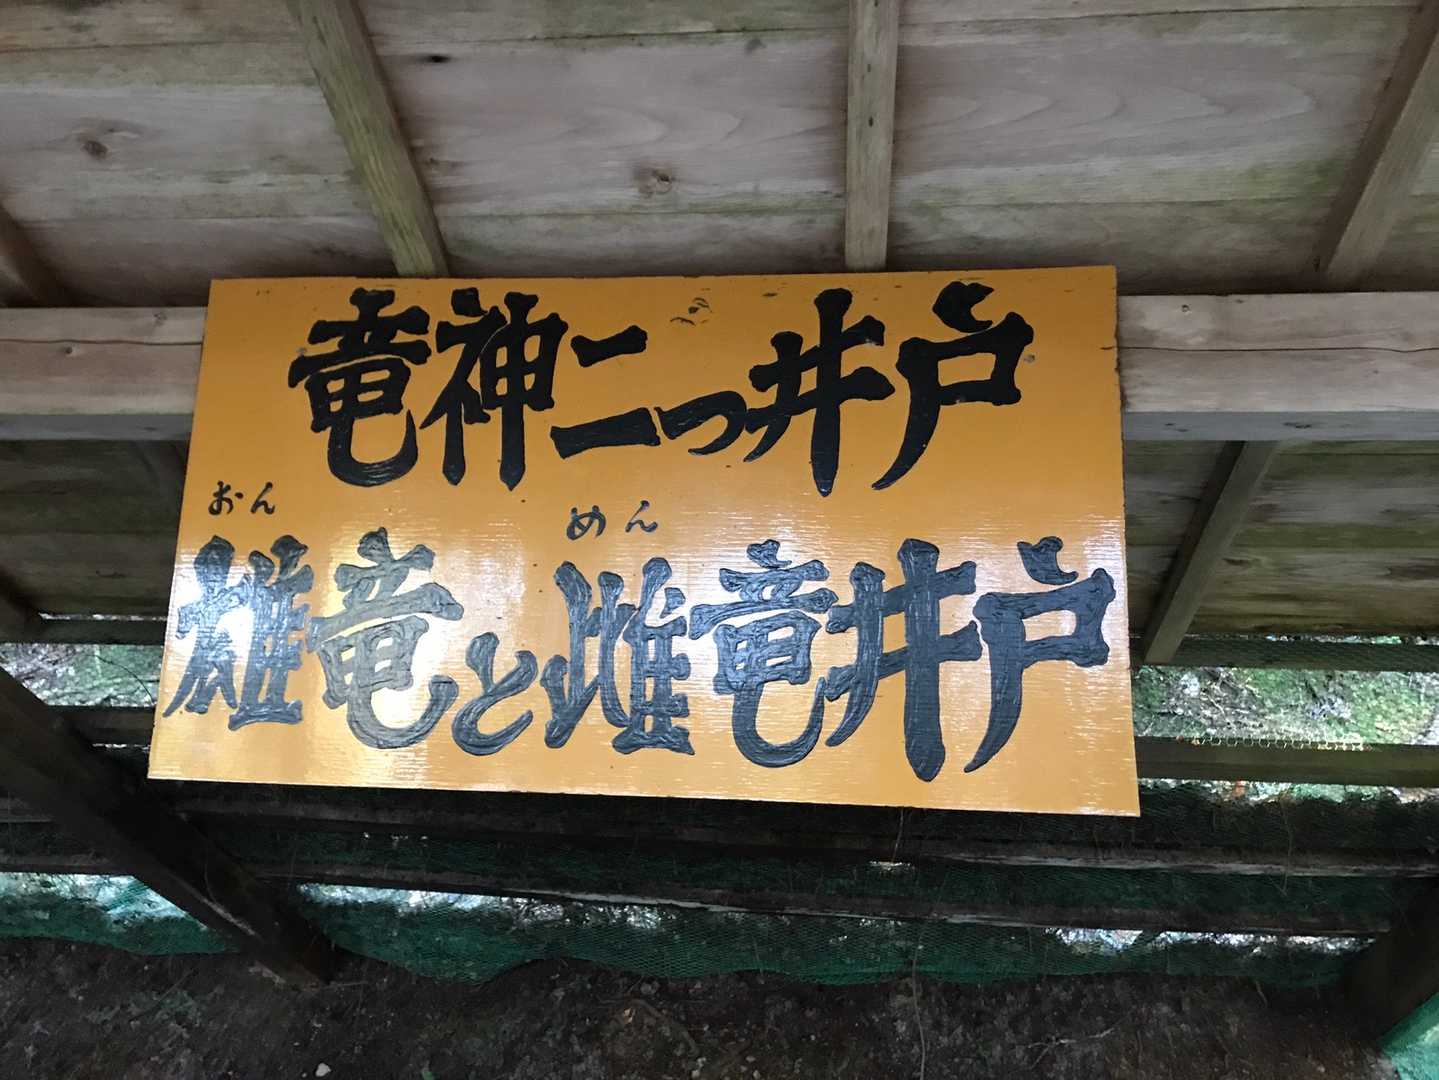 竜神二つ井戸
おん めん
雄竜と雌竜井戸